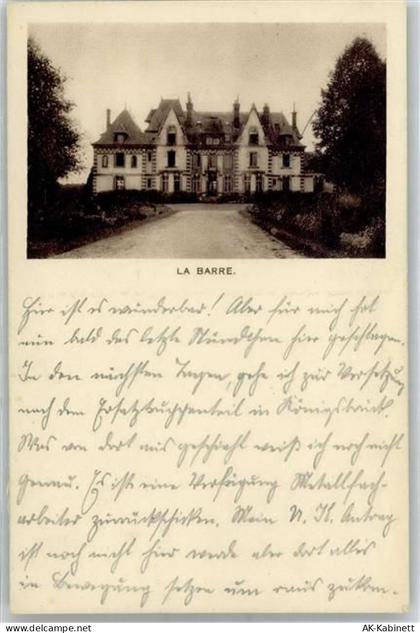 LA BARRE.
Hier ist es wunderbar! Aber für mich hat
nun bald das letzte Stündchen hier geschlagen.
In den nächsten Tagen, gehe ich zur Versetzung
nach dem Ersatztruppenteil in Königsbrück.
Was von dort aus geschieht weiß ich noch nicht
genau. Es ist eine Verfügung Metallfach-
arbeiter zurückschicken. Mein U. K. Antrag
ist noch nicht hier werde aber dort alles
in Bewegung setzen um raus zukom-
© AK-Kabinett